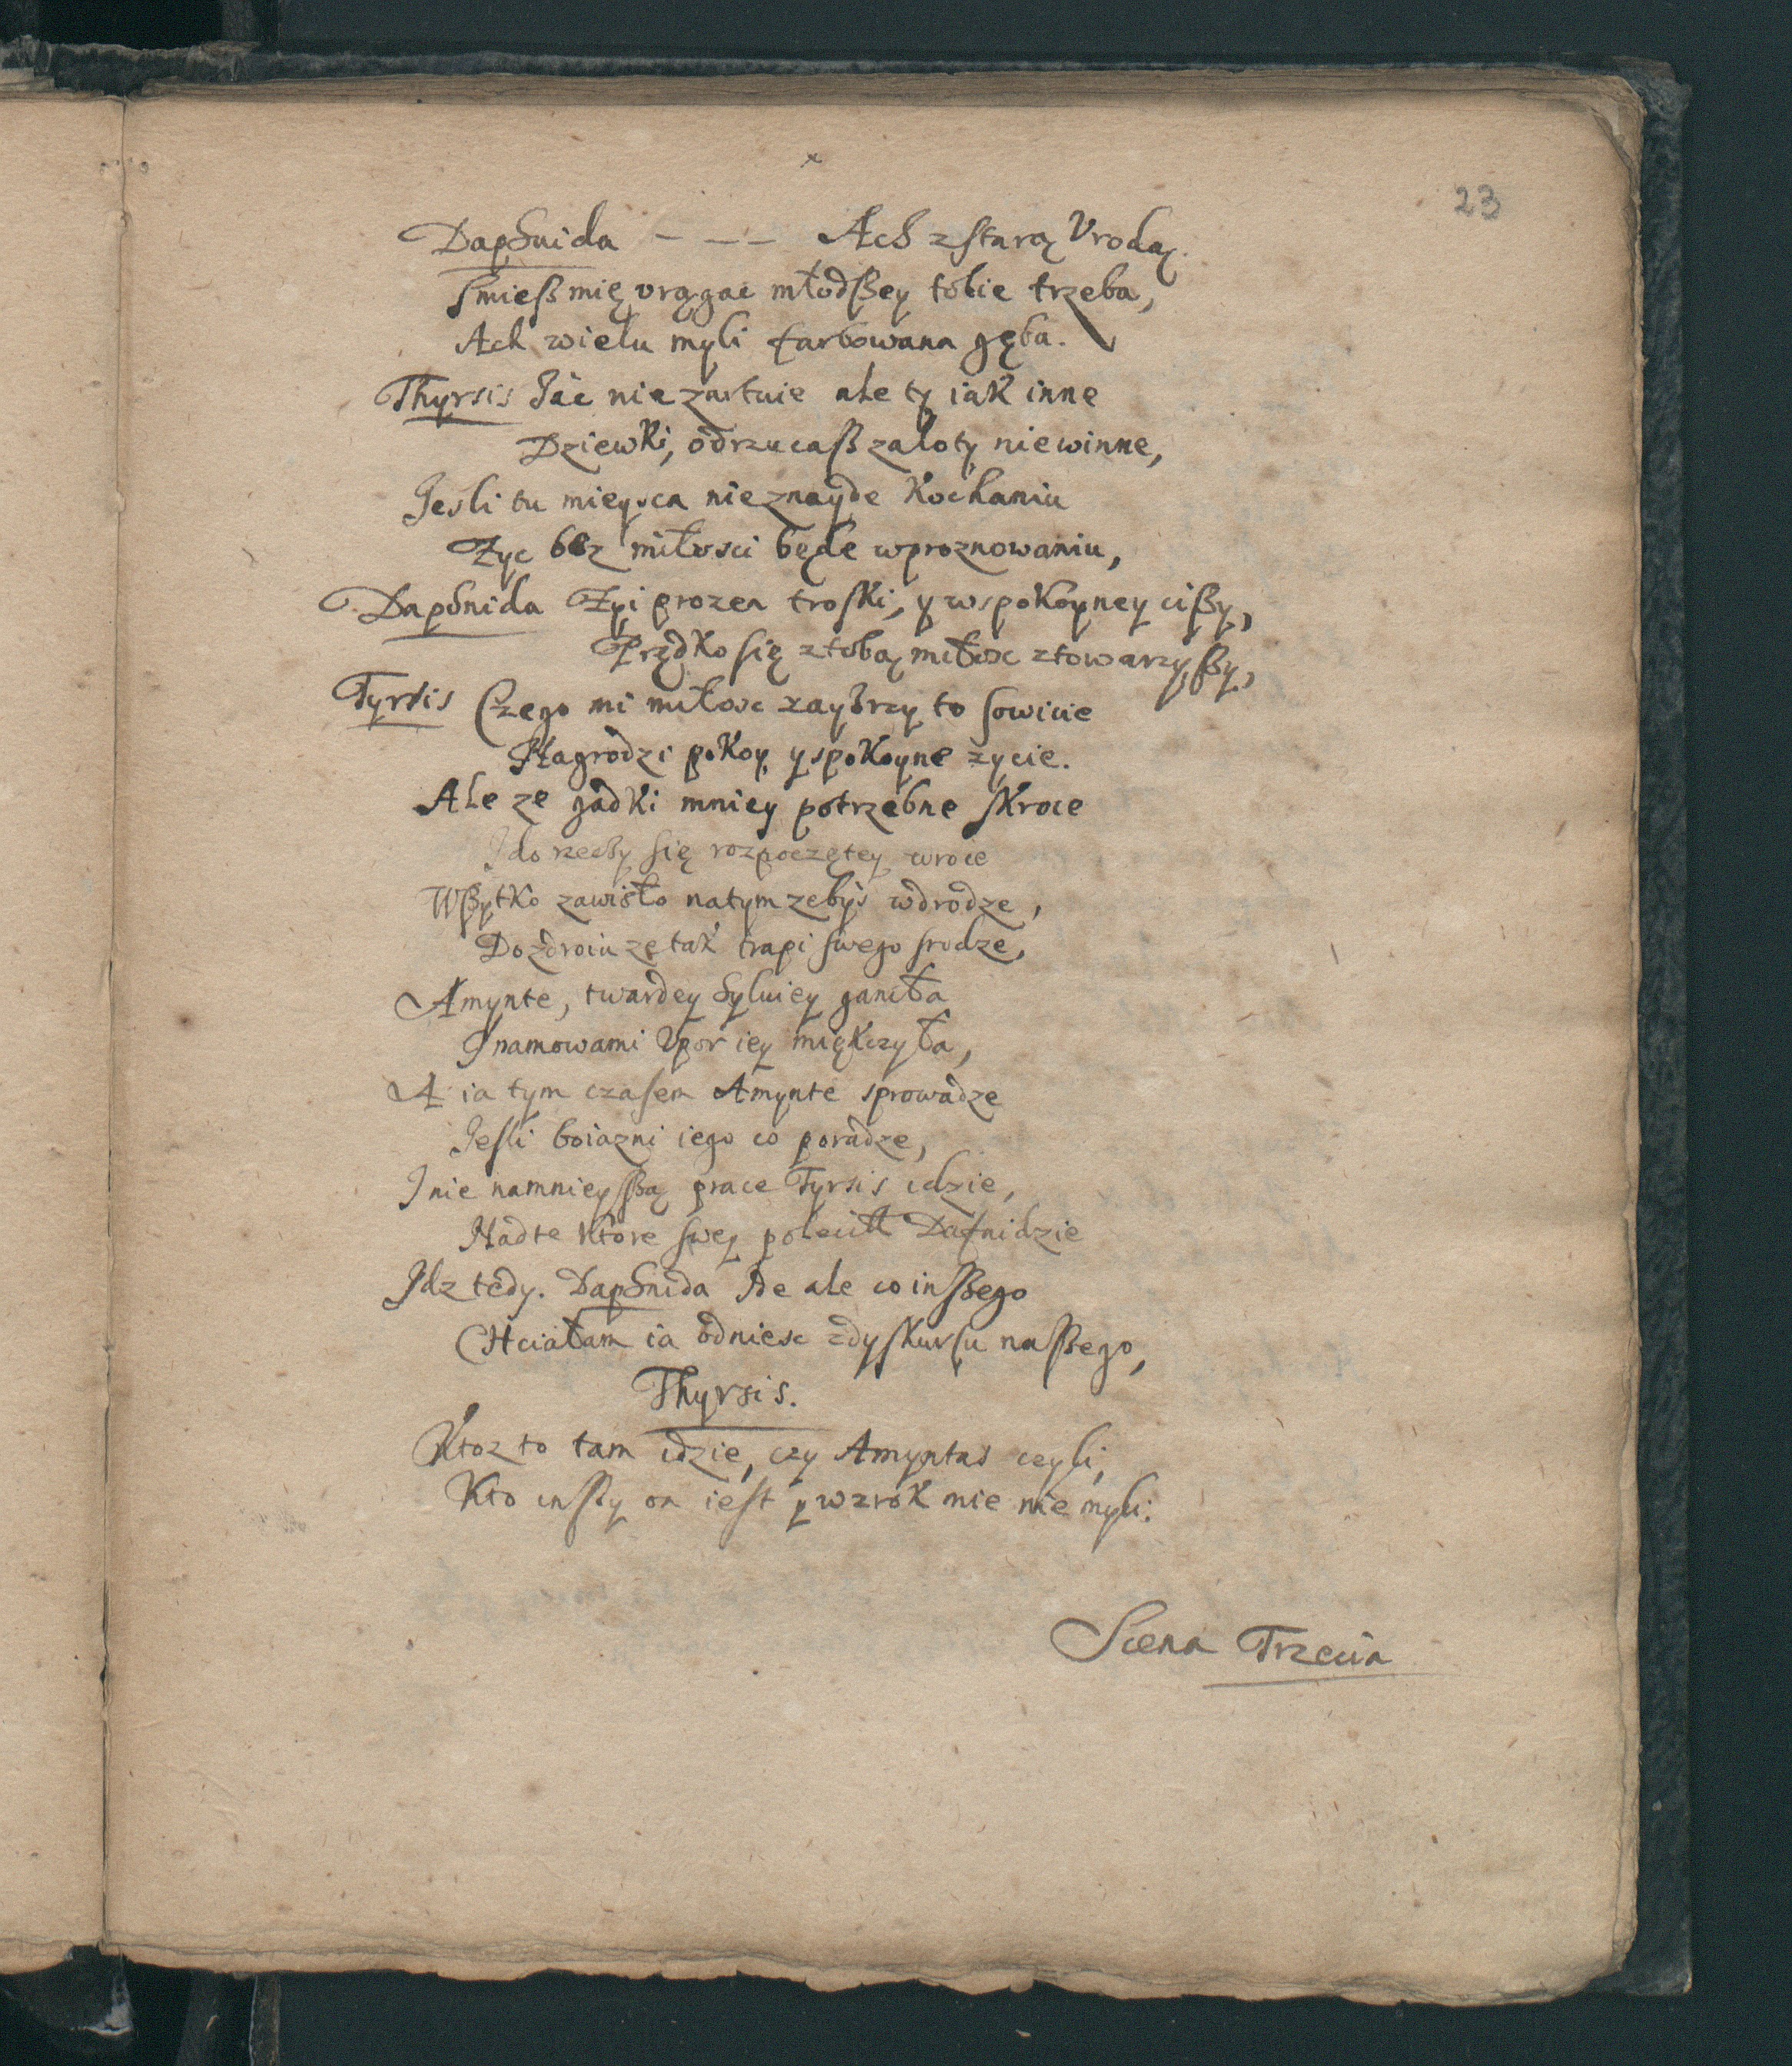 23
Daphnida - - - Ach z starą Vrodą.
Smieß mię vrągac młodßey tobie trzeba,
Ach wielu myli farbowana gęba.
Thyrsis Jac nie zartuie ale ty iak inne
Dziewki, odrzucaß zaloty niewinne,
Jesli tu mieysca nie znayde Kochaniu
Zyc bez miłosci będe wproznowaniu,
Daphnida Zyi prozen troski, y wspokoyney cißy,
Prędko się ztobą miłosc ztowarzyßy,
Tyrsis Czego mi miłosc zayhrzy to sowicie
Nagrodzi pokoy y spokoyne zycie.
Ale ze gadki mniey potrzebne skroce
J do rzeczy się rozpoczętey wroce
Wßytko zawisło natym zebys wdrodze,
Do zdroiu ze tak trapi swego srodze,
Amynte, twardey Sylviey ganiła
J namowami Vpor iey miękczyła,
A ia tym czasem Amynte sprowadze
Jesli boiazni iego co poradze,
J nie namnieyßą prace Tyrsis idzie,
Nadte ktore swey polecił Dafnidzie
Jdz tedy. Daphnida Jde ale co inßego
CHciałam ia odniesc zdyskursu naßego,
Thyrsis.
Ktoz to tam idzie, czy Amyntas czyli,
Kto inßy on iest y wzrok mie nie myli.
Scena Trzecia